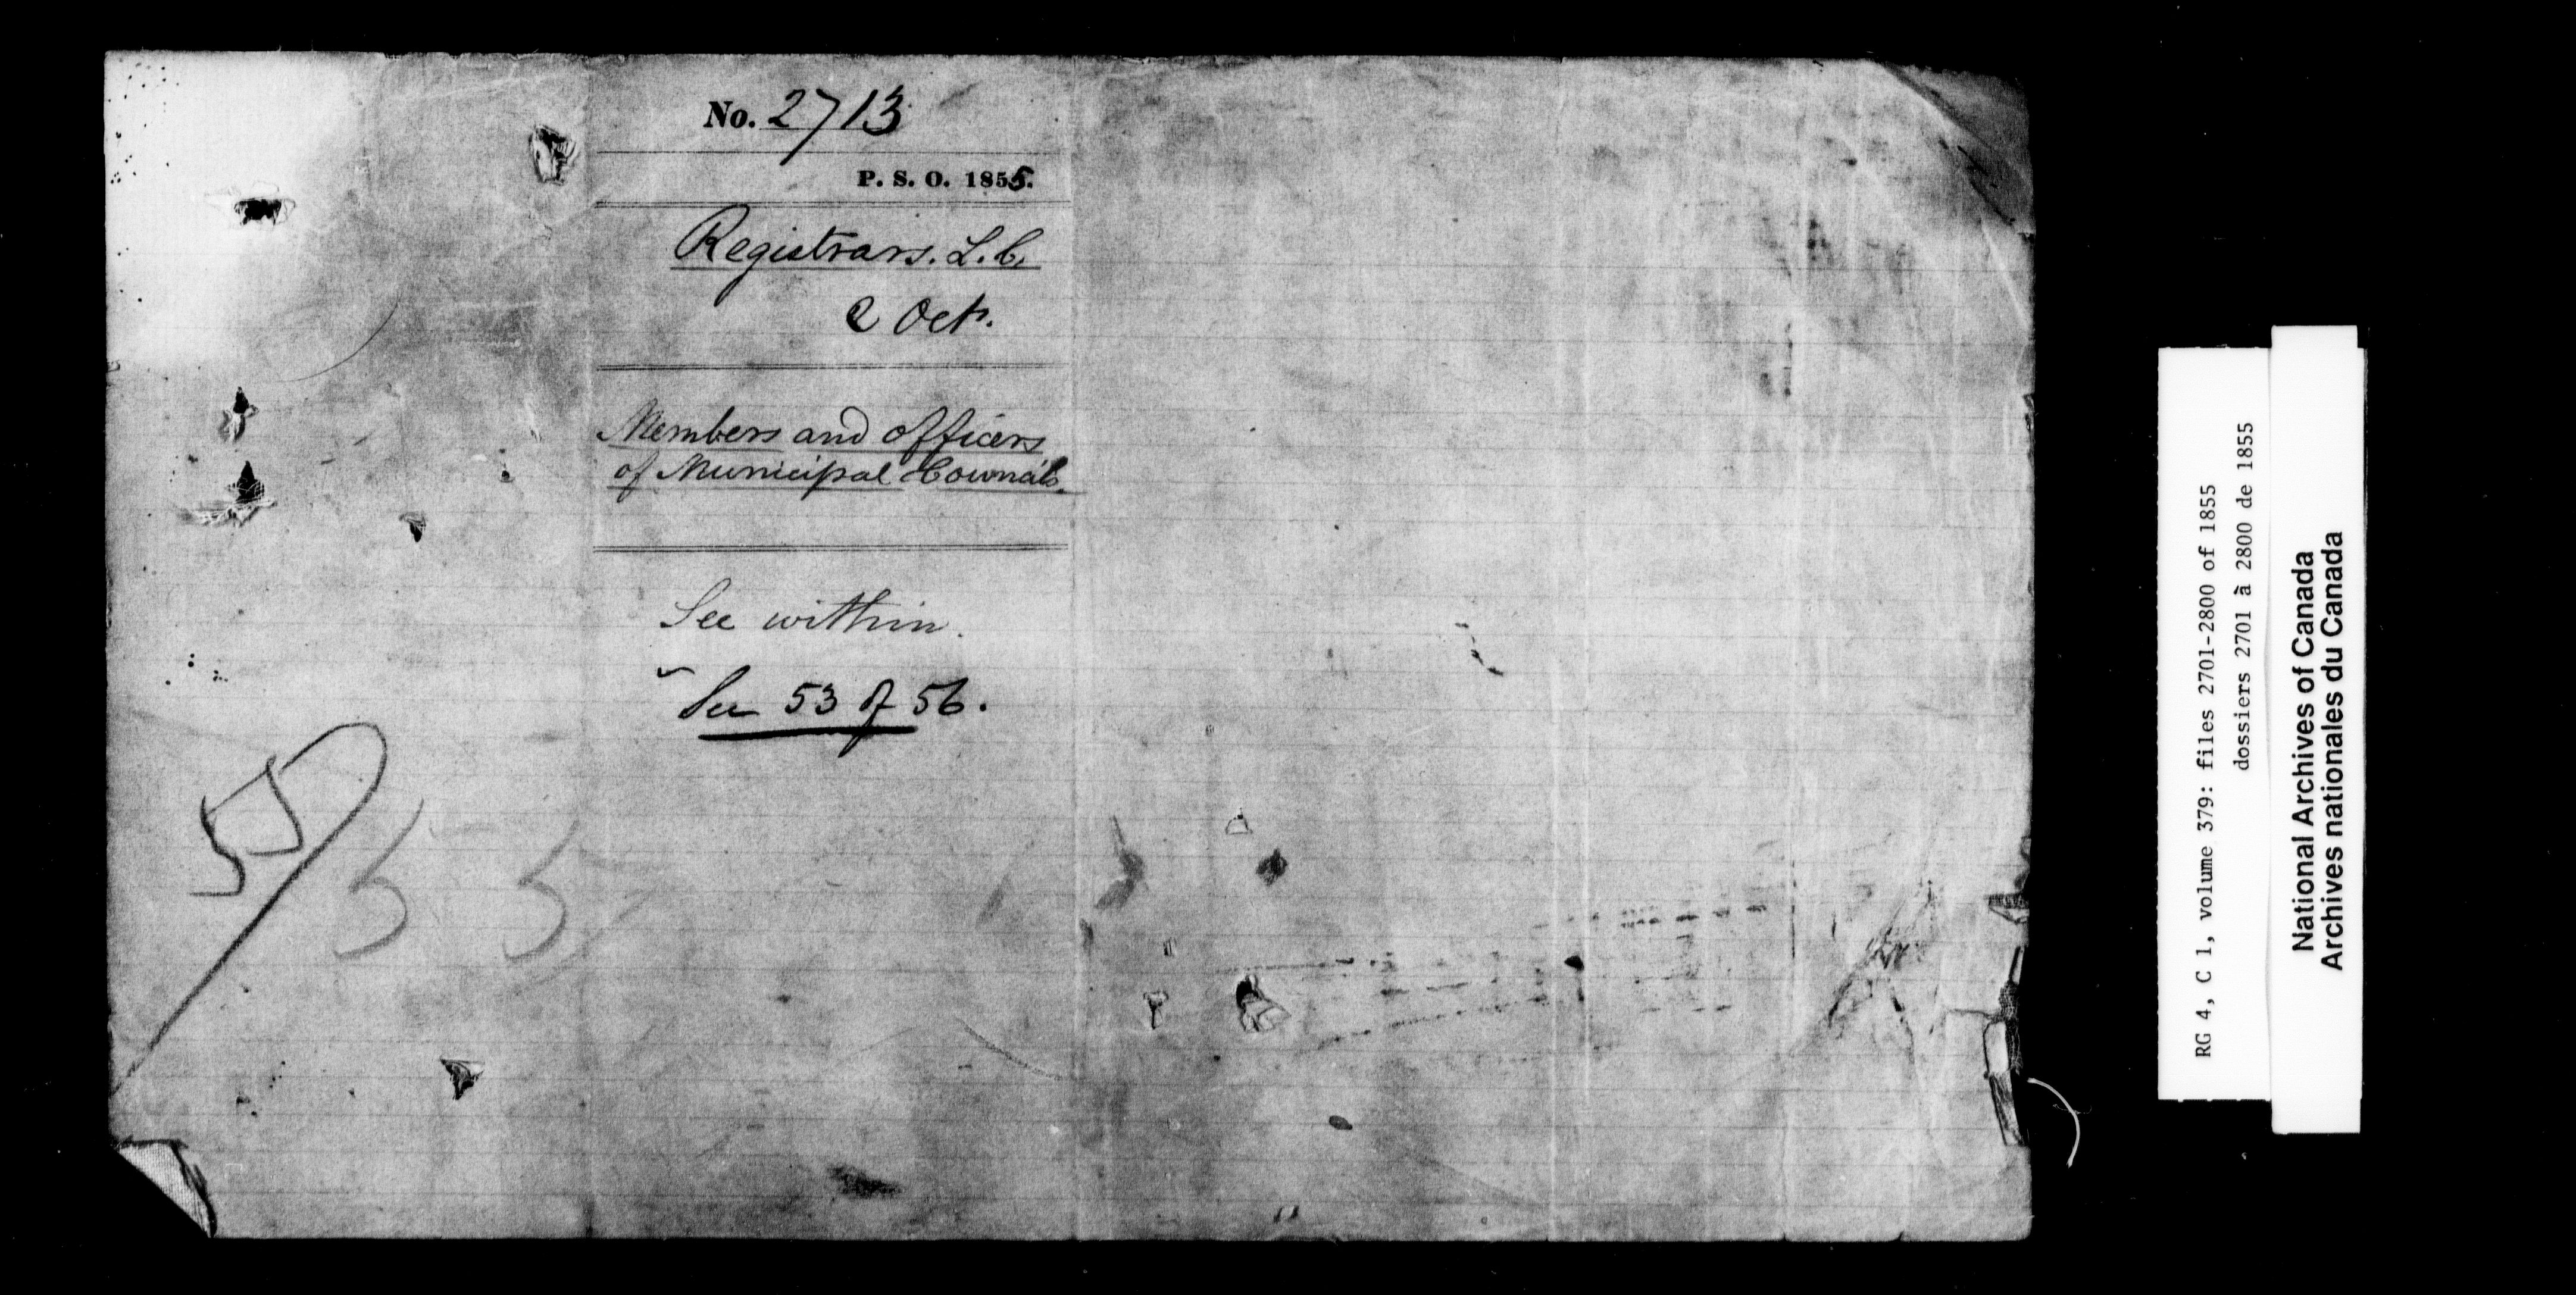 No. 2713
P. S. O. 1855.
Registrars. L. C.
2 Oct.
Members and officers
of Municipal Councils.
See within.
See 53 of 56.
RG 4, C 1, volume 379: files 2701-2800 of 1855
dossiers 2701 à 2800 de 1855
National Archives of Canada
Archives nationales du Canada